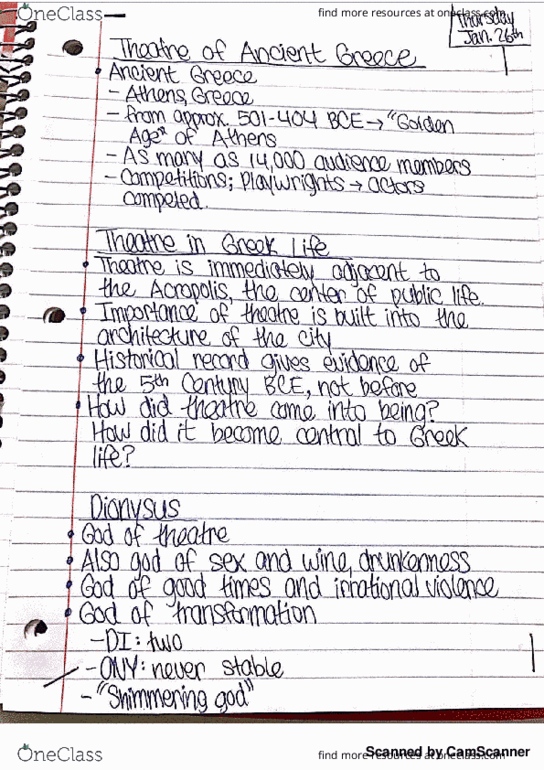 OneClass
find more resources at oneclass.com
Thursday
Jan. 26th
Theatre of Ancient Greece
• Ancient Greece
- Athens, Greece
- from approx. 501-404 BCE → "Golden
Age" of Athens
- As many as 14,000 audience members
- Competitions; playwrights → actors
competed.
Theatre in Greek Life
• Theatre is immediately adjacent to
the Acropolis, the center of public life.
• Importance of theatre is built into the
architecture of the city
• Historical record gives evidence of
the 5th Century BCE, not before
• How did theatre come into being?
How did it become central to Greek
life?
Dionysus
• God of theatre
• Also god of sex and wine, drunkenness
• God of good times and irrational violence
• God of transformation
- DI: two
- ONY: never stable
- "Shimmering god"
OneClass
find more resources at oneclass.com
Scanned by CamScanner